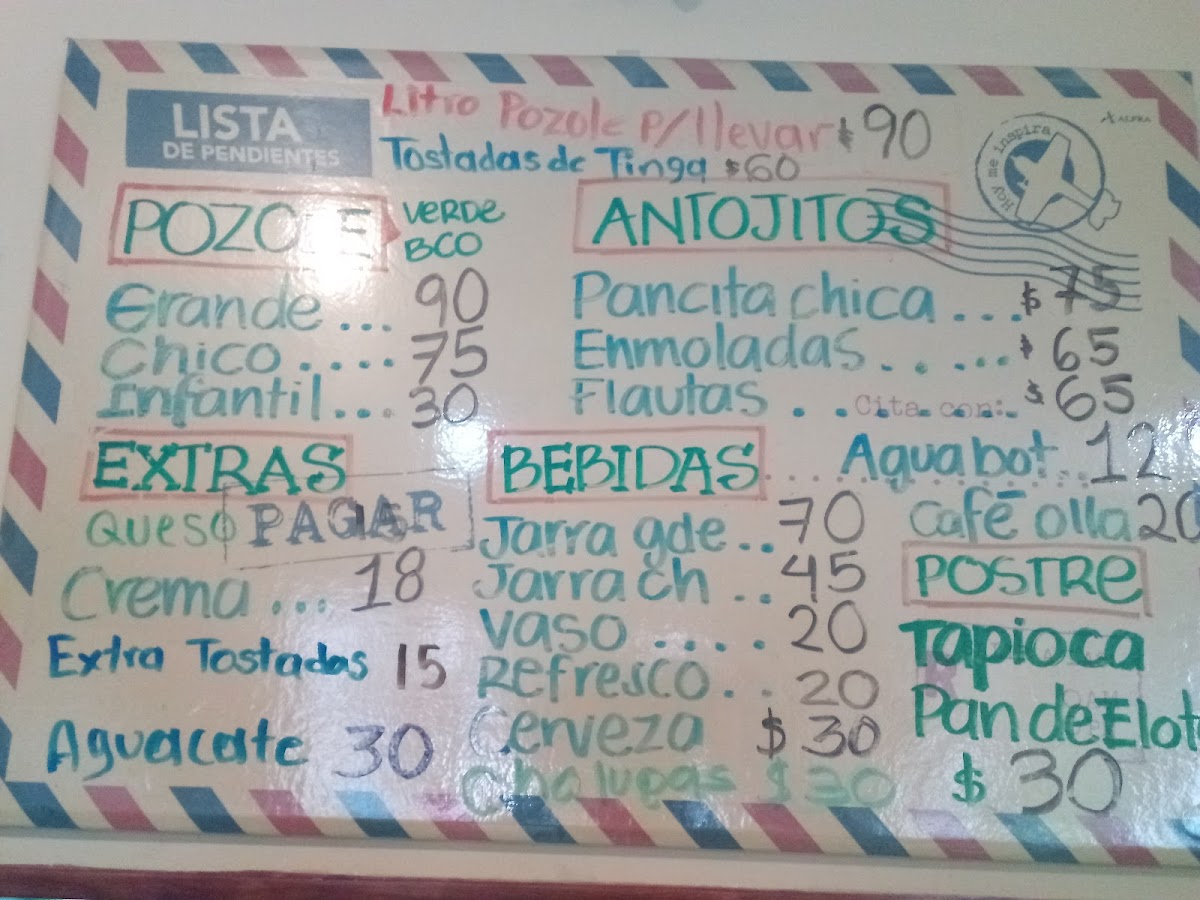 LISTA
DE PENDIENTES
Litro Pozole p/llevar $90
Tostadas de Tinga $60
Hoy me inspira
ALFRA
POZOLE VERDE
BCO
Grande... 90
Chico..... 75
Infantil... 30
ANTOJITOS
Pancita chica ...$75
Enmoladas.....$65
Flautas ..Cita con:. $65
EXTRAS
Queso PAGAR
Crema ... 18
Extra Tostadas 15
Aguacate 30
BEBIDAS
Jarra gde.. 70
Jarra Ch .. 45
Vaso .... 20
Refresco.. 20
Cerveza $30
Chalupas $30
Agua bot... 12
Café olla 20
POSTRE
Tapioca
Pan de Elot
$30